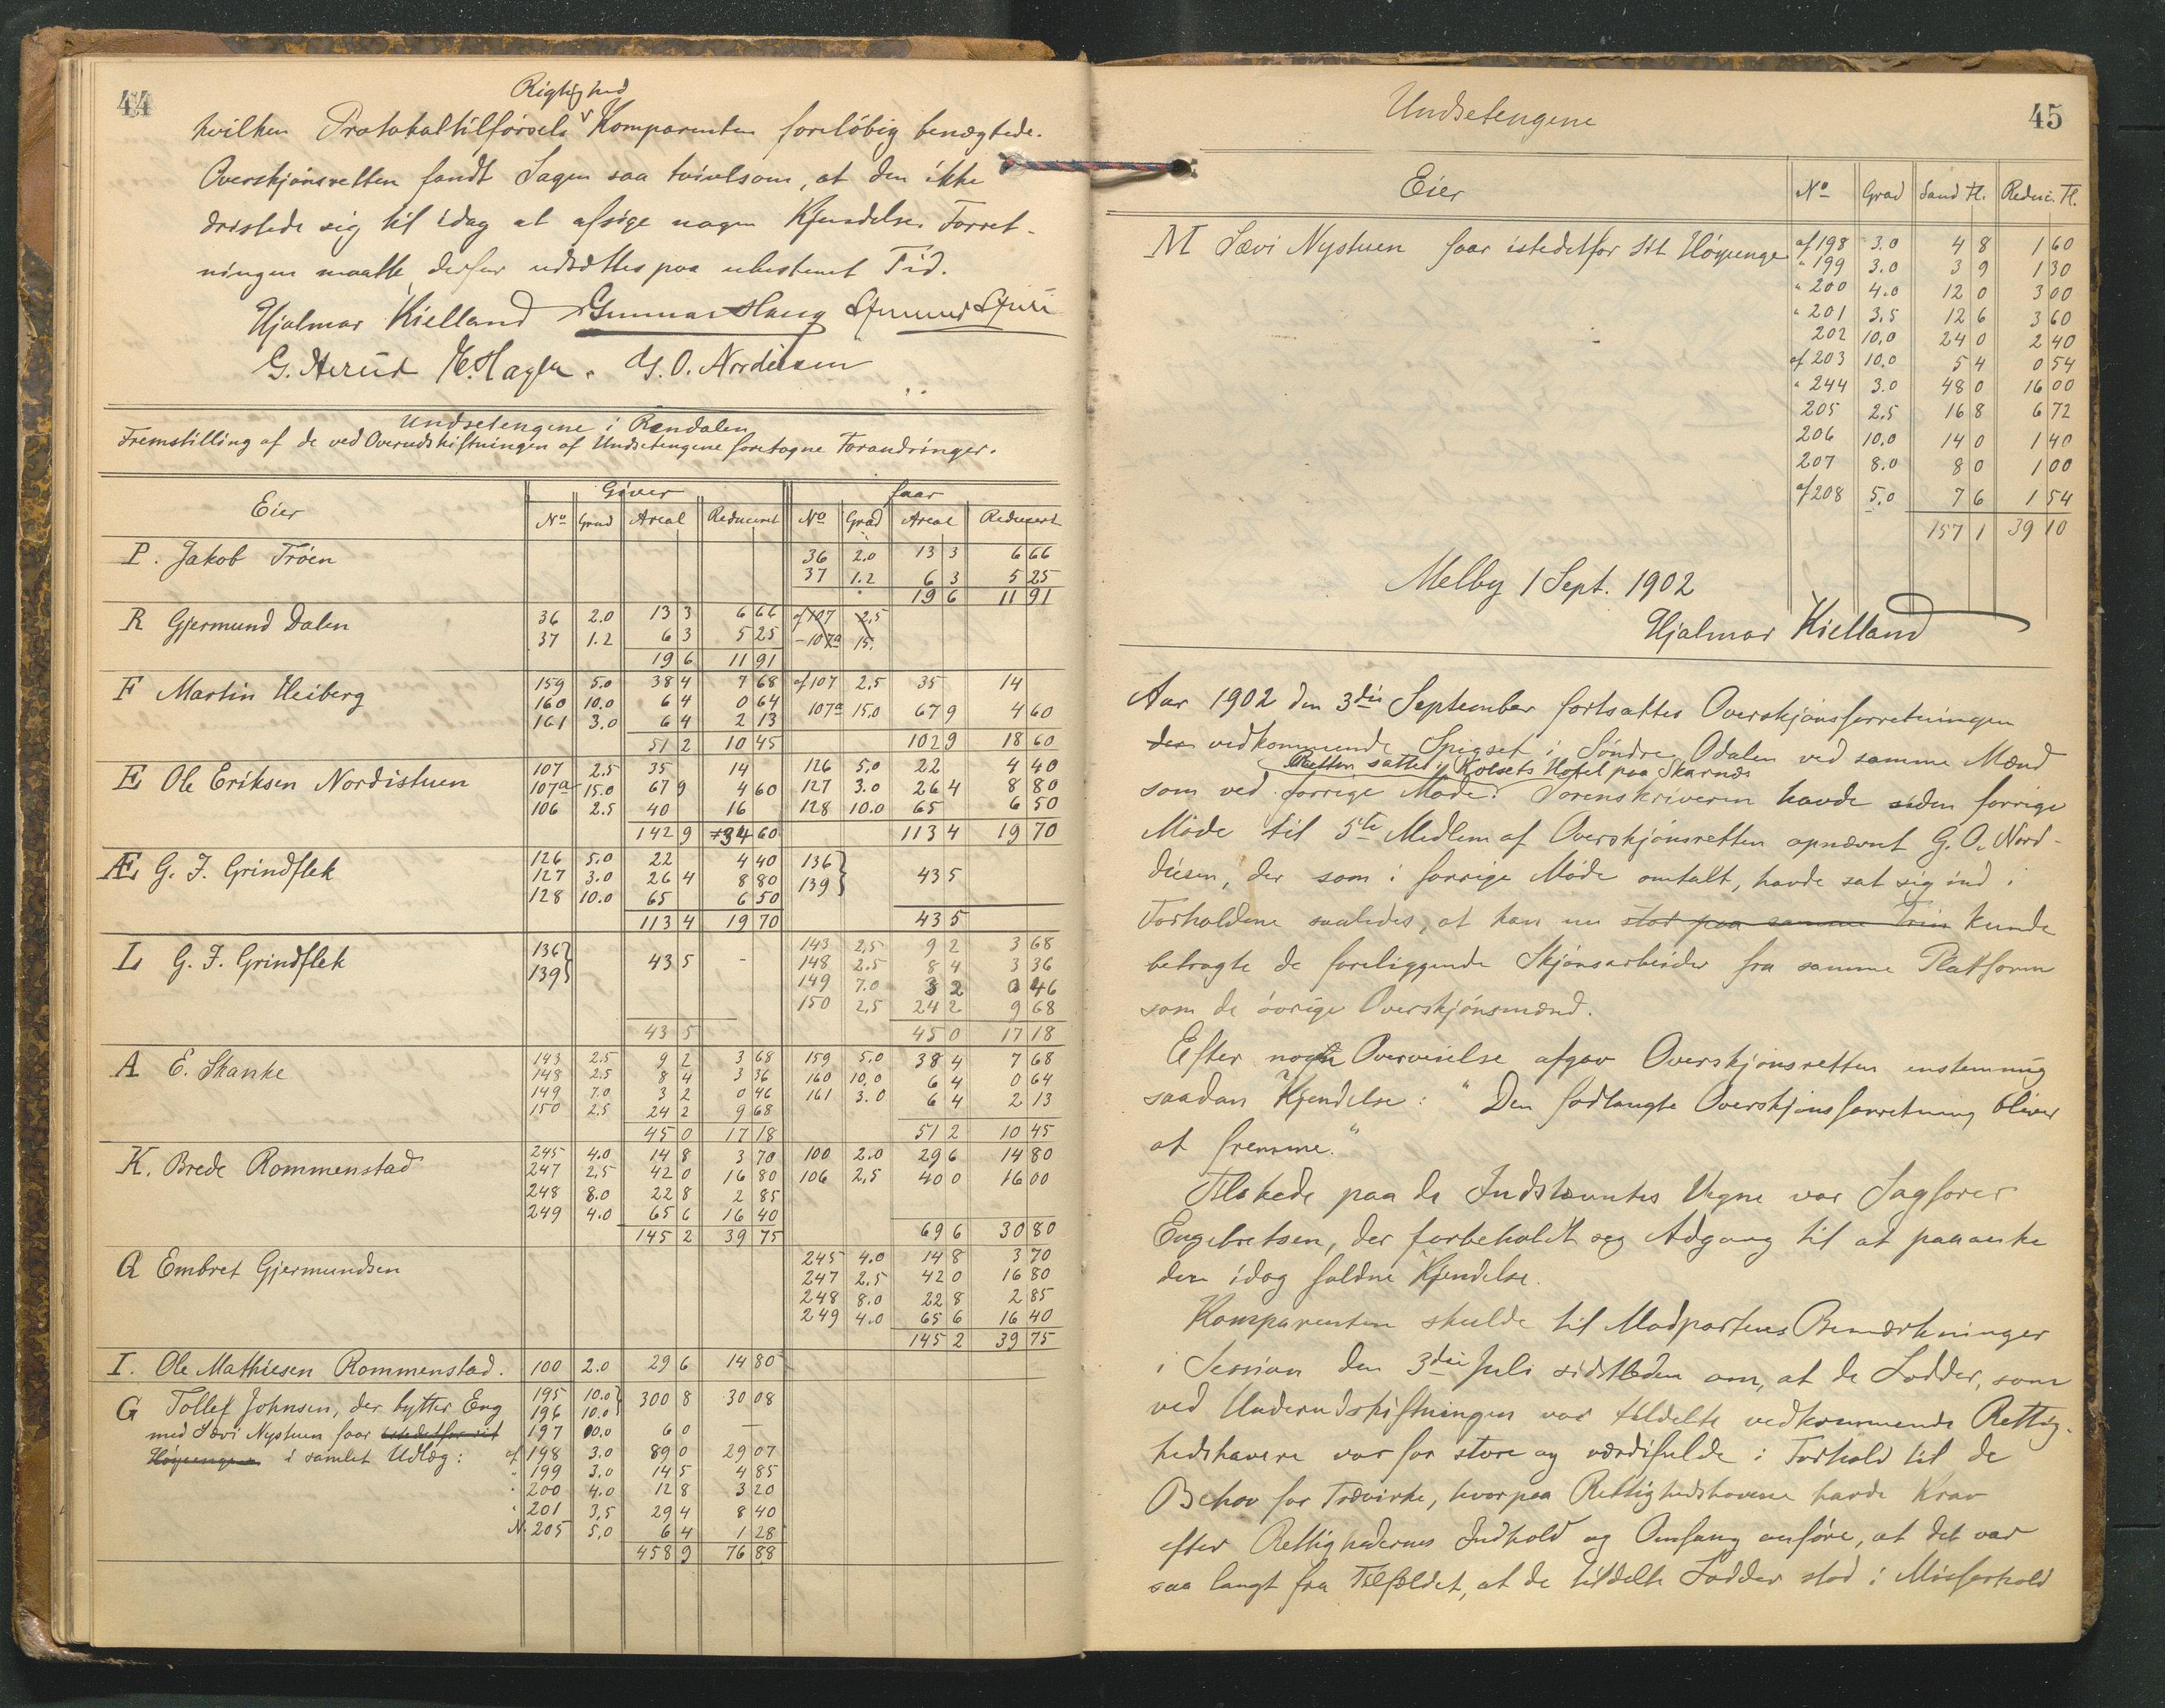 44
Rigtighed
hvilken Protokoltilförsels Komparenten foreløbig benægtede.
Overskjönsretten fandt Sagen saa tvivlsom, at den ikke
dristede sig til idag at afsige nogen Kjendelse. Forret-
ningen maatte derfor udsættes paa ubestemt Tid.
Hjalmar Kielland Gunnar Haug
G. Herud G. O. Nordiesen
Undsetengene i Rendalen
Fremstilling af de ved Overudskiftningen af Undsetengene foretagne Forandringer.
Giver faar
Eier No Grad Areal Reduceret No Grad Areal Reducert
P. Jakob Tröen 36 2.0 13 3 6 66
37 1.2 6 3 5 25
19 6 11 91
R Gjermund Dalen 36 2.0 13 3 6 66 af 107 2,5
37 1.2 6 3 5 25 - 107a 15.
19 6 11 91
F Martin Heiberg 159 5.0 38 4 7 68 af 107 2,5 35 14
160 10.0 6 4 0 64 107a 15.0 67 9 4 60
161 3.0 6 4 2 13
51 2 10 45 102 9 18 60
E Ole Eriksen Nordistuen 107 2.5 35 14 126 5,0 22 4 40
107a 15.0 67 9 4 60 127 3.0 26 4 8 80
106 2.5 40 16 128 10.0 65 6 50
142 9 34 60 113 4 19 70
Æ G. J. Grindflek 126 5.0 22 4 40 136}
127 3.0 26 4 8 80 139} 43 5
128 10.0 65 6 50
113 4 19 70 43 5
L G. J. Grindflek 136} 43 5 - 143 2,5 9 2 3 68
139} 148 2.5 8 4 3 36
149 7.0 3 2 0 46
150 2,5 24 2 9 68
43 5 45 0 17 18
A E. Skanke 143 2.5 9 2 3 68 159 5.0 38 4 7 68
148 2.5 8 4 3 36 160 10,0 6 4 0 64
149 7.0 3 2 0 46 161 3.0 6 4 2 13
150 2,5 24 2 9 68
45 0 17 18 51 2 10 45
K. Brede Rommenstad 245 4.0 14 8 3 70 100 2.0 29 6 14 80
247 2,5 42 0 16 80 106 2,5 40 0 16 00
248 8.0 22 8 2 85
249 4.0 65 6 16 40
145 2 39 75 69 6 30 80
Q Embret Gjermundsen 245 4.0 14 8 3 70
247 2,5 42 0 16 80
248 8.0 22 8 2 85
249 4.0 65 6 16 40
145 2 39 75
I. Ole Mathiesen Rommenstad. 100 2.0 29 6 14 80
G Tollef Johnsen, der bytter Eng 195 10.0} 300 8 30 08
196 10.0}
med Sævi Nystuen faar istedetfor sit 197 00.0 6 0 —
Höyeenger i samlet Udlæg: af 198 3.0 89 0 29 07
" 199 3.0 14 5 4 85
" 200 4.0 12 8 3 20
" 201 3,5 29 4 8 40
N. 205 5,0 6 4 1 28
458 9 76 88
Undsetengene
45
Eier No Grad Sand Fl. Reduc. Fl.
M Sævi Nystuen faar istedetfor sit Höyenge af 198 3.0 4 8 1 60
" 199 3.0 3 9 1 30
" 200 4.0 12 0 3 00
" 201 3,5 12 6 3 60
202 10,0 24 0 2 40
af 203 10.0 5 4 0 54
" 244 3.0 48 0 16 00
205 2.5 16 8 6 72
206 10.0 14 0 1 40
207 8.0 8 0 1 00
af 208 5,0 7 6 1 54
157 1 39 10
Melby 1 Sept. 1902
Hjalmar Kielland
Aar 1902 den 3die September fortsattes Overskjönsforretningen
den vedkommende Spigset i Söndre Odalen ved samme Mænd
Retten sattes i Kolsets Hotel paa Skarnæs
som ved forrige Möde. Sorenskriveren havde siden forrige
Möde til 5te Medlem af Overskjönsretten opnævnt G. O. Nord-
diesen, der som i forrige Möde omtalt, havde sat sig ind i
Forholdene saaledes, at han nu stod paa samme Trin kunde
betragte de foreliggende Skjönsarbeider fra samme Platform
som de övrige Overskjönsmænd.
Efter nogen Overveielse afgav Overskjönsretten enstemmig
saadan Kjendelse: "Den forlangte Overskjönsforretning bliver
at fremme."
Tilstede paa de Indstevntes Vegne var Sagförer
Engebretsen, der forbeholdt seg Adgang til at paaanke
den idag faldne Kjendelse.
Komparenten skulde til Modpartens Bemærkninger
i Session den 3die Juli sidstleden om, at de Lodder, som
ved Underudskiftningen var tildelte vedkommende Rettig-
hedshavere var for store og værdifulde i Forhold til de
Behov for Trævirke, hvorpaa Rettighedshaverne havde Krav
efter Rettighedernes Indhold og Omfang anföre, at det var
saa langt fra Tilfældet, at de tildelte Lodder stod i Misforhold